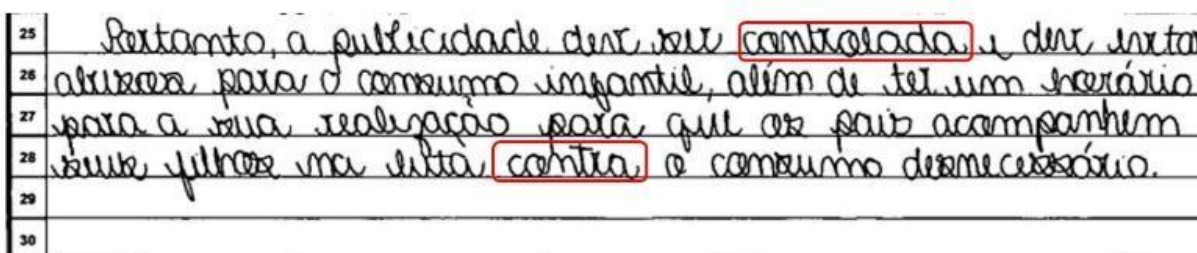 25 Portanto, a publicidade deve ser controlada e deve evitar
26 abusos para o consumo infantil, além de ter um horário
27 para a sua realização para que os pais acompanhem
28 seus filhos na luta contra o consumo desnecessário.
29
30